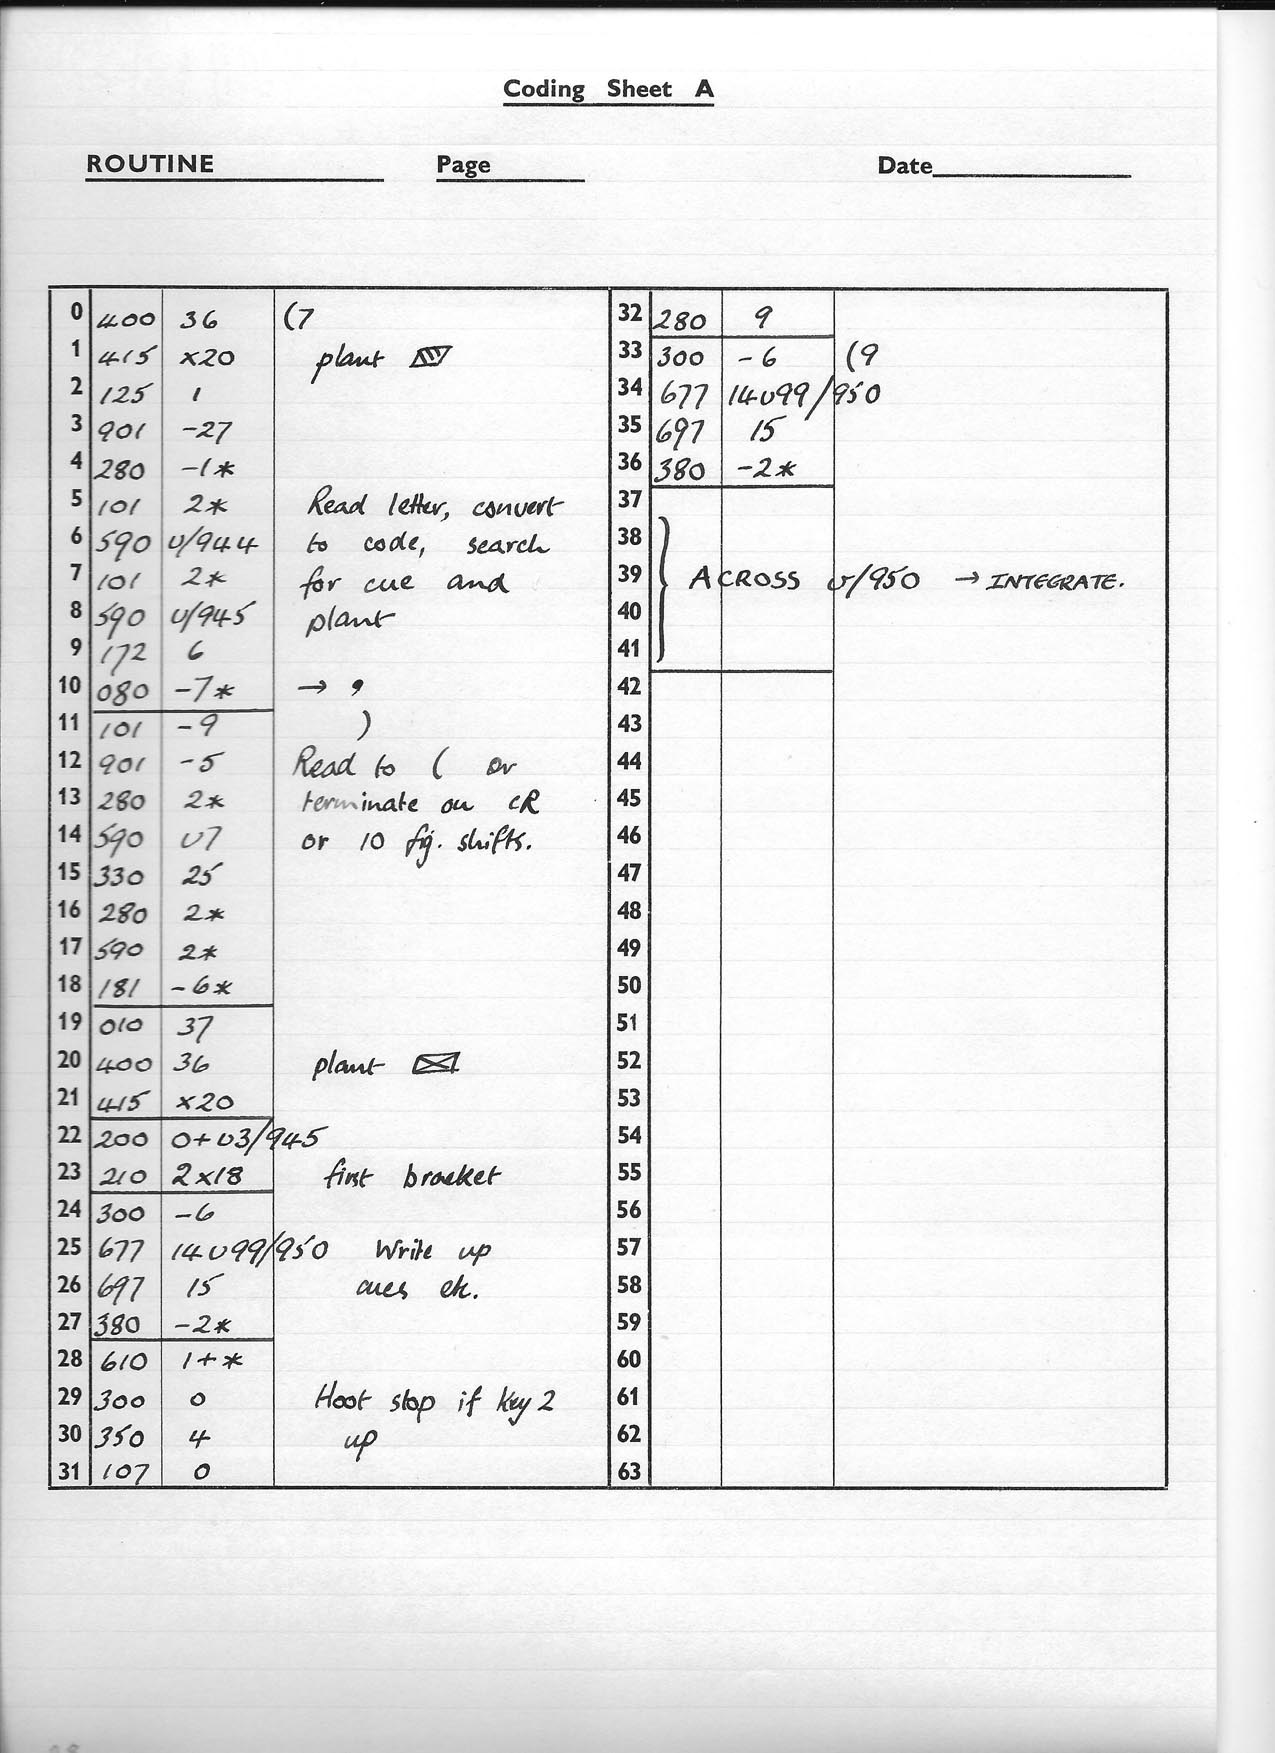 Coding Sheet A
ROUTINE Page Date
0 400 36 (7
1 415 x20 plant
2 125 1
3 901 -27
4 280 -1*
5 101 2* Read letter, convert
6 590 v/944 to code, search
7 101 2* for cue and
8 590 v/945 plant
9 172 6
10 080 -7* → ,
11 101 -9 )
12 901 -5 Read to ( or
13 280 2* terminate on CR
14 590 v7 or 10 fig. shifts.
15 330 25
16 280 2*
17 590 2*
18 181 -6*
19 010 37
20 400 36 plant
21 415 x20
22 200 0+v3/945
23 210 2x18 first bracket
24 300 -6
25 677 14v99/950 Write up
26 697 15 cues etc.
27 380 -2*
28 610 1+*
29 300 0 Hoot stop if key 2
30 350 4 up
31 107 0
32 280 9
33 300 -6 (9
34 677 14v99/950
35 697 15
36 380 -2*
37
38
39 ACROSS v/950 → INTEGRATE.
40
41
42
43
44
45
46
47
48
49
50
51
52
53
54
55
56
57
58
59
60
61
62
63